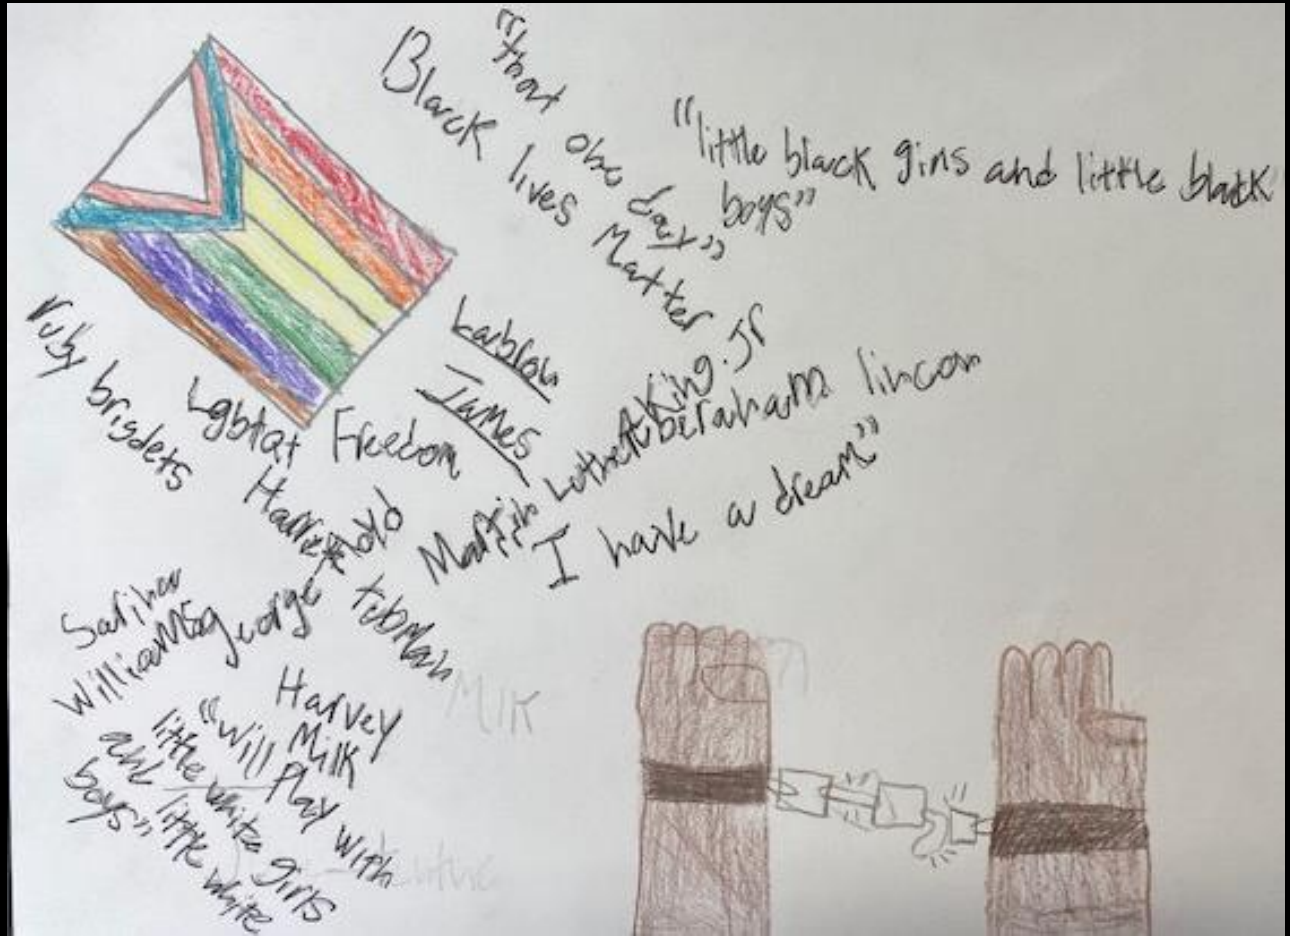 "that one day"
Black lives Matter
"little black girls and little black
boys"
Lebron
James
Martin Luther King.Jr
Aberaham lincon
I have a dream"
ruby brigdets
Lgbtqt
Freedom
Harriet tubMan
george floyd
WilliaMs
Harvey
Milk
"will Play with
little white girls
and little white
boys"
Milk